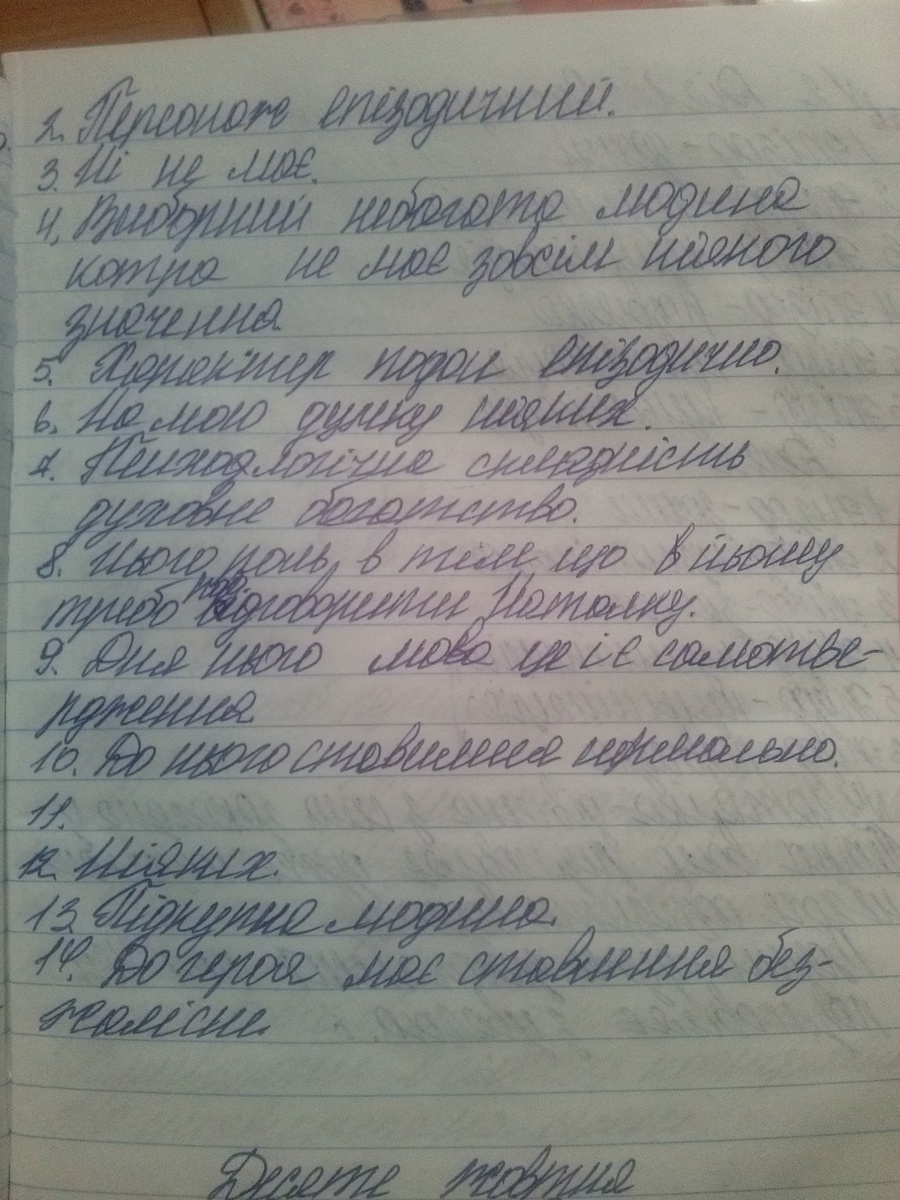 2. Персонаж епізодичний.
3. Ні не має.
4. Виборний небогата людина
котра не має зовсім ніякого
значення.
5. Характер подан епізодично.
6. На мою думку ніяких.
7. складність
духовне богатство.
8. Його роль в тім що в йому
треба Наталку.
9. Для нього мова це і є самотве-
рдження.
10. До нього ставлення нормально.
11.
12. Ніяких.
13. Підкупна людина.
14. До героя має ставлення без-
жалісне.
Десяте жовтня